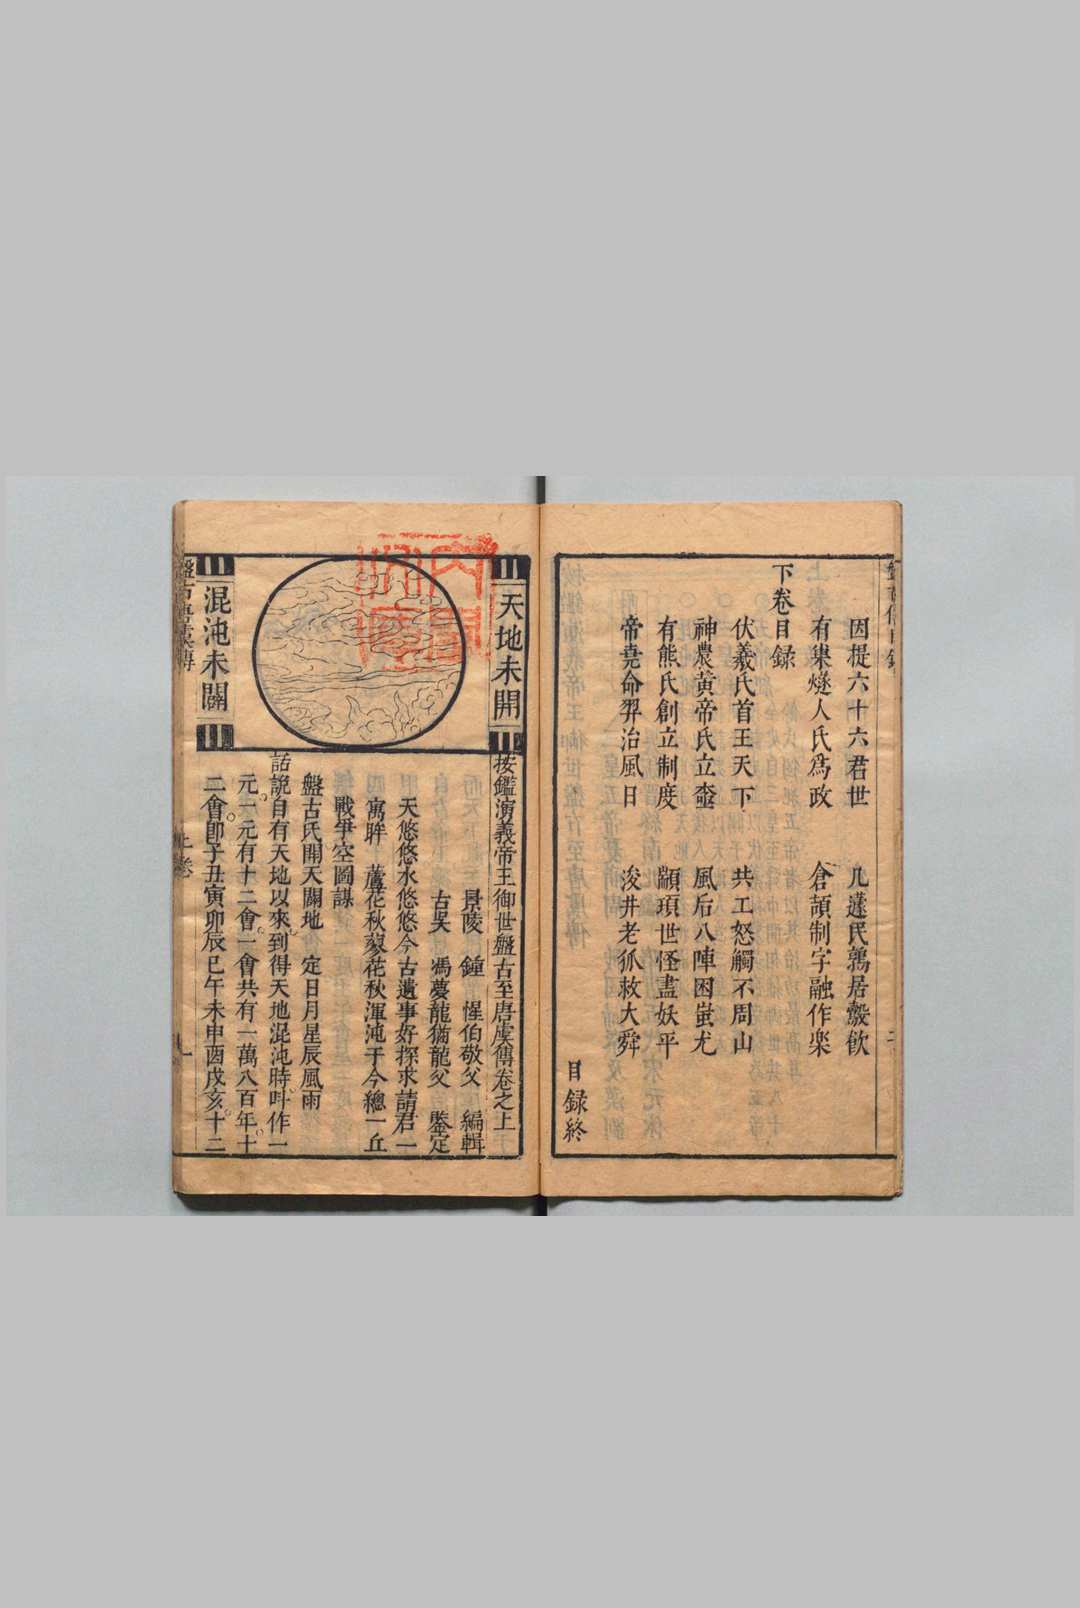 因提六十六君世　几蘧氏鶉居鷇飲
有巢燧人氏為政　倉頡制字融作樂
下卷目録
伏羲氏首王天下　共工怒觸不周山
神農黃帝氏立壺　風后八陣困蚩尤
有熊氏創立制度　顓頊世怪盡妖平
帝堯命羿治風日　浚井老狐救大舜
目録終
天地未開
混沌未闢
按鑑演義帝王御世盤古至唐虞傳卷之上
景陵　鍾　惺伯敬父　編輯
古吳　馮夢龍猶龍父　鑒定
天悠悠水悠悠今古遺事好探求請君一
寓眸　蘆花秋蓼花秋渾沌于今總一丘
戰爭空圖謀
盤古氏開天闢地　定日月星辰風雨
話說自有天地以來到得天地混沌時呌作一
元一元有十二會一會共有一萬八百年十
二會即子丑寅卯辰巳午未申酉戌亥十二
上卷
一